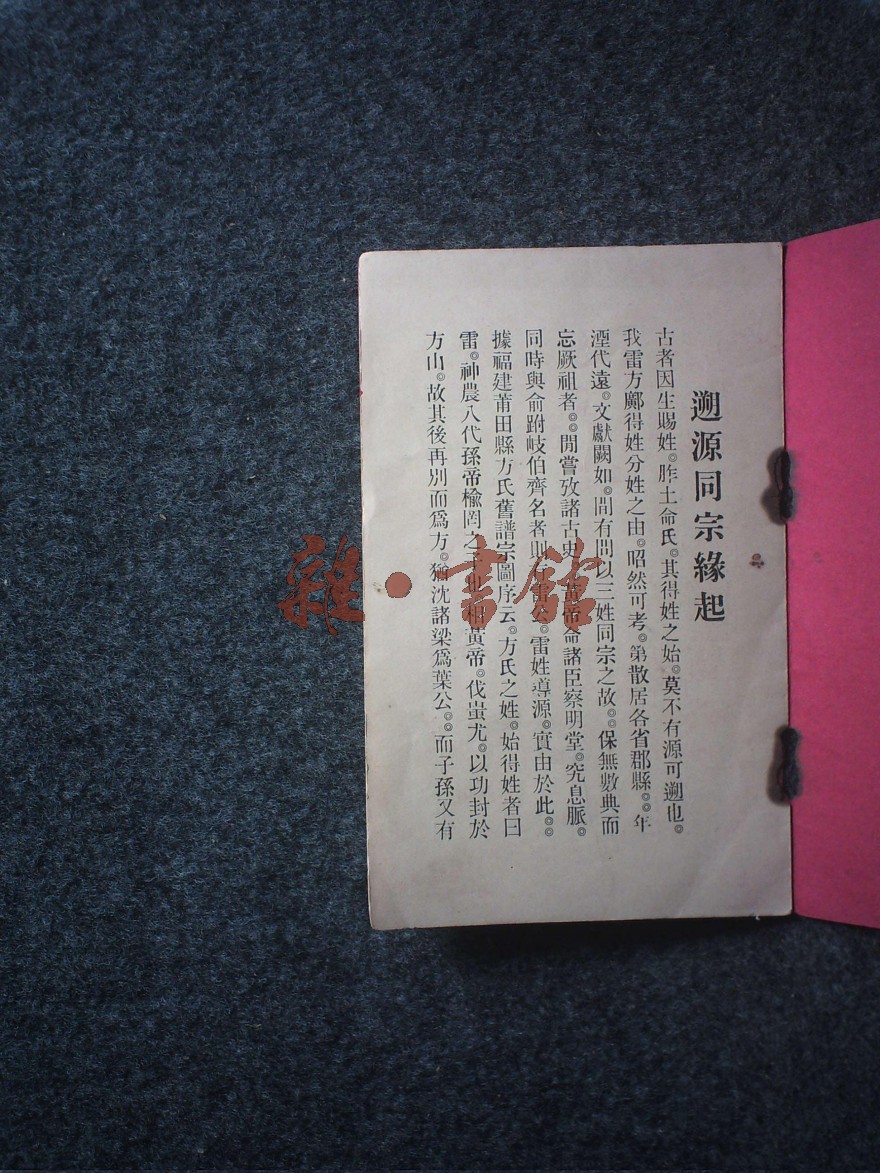 遡源同宗緣起
古者因生賜姓。胙土命氏。其得姓之始。莫不有源可遡也。
我雷方鄺得姓分姓之由。昭然可考。第散居各省郡縣。年
湮代遠。文獻闕如。間有問以三姓同宗之故。保無數典而
忘厥祖者。閒嘗攷諸古史。黃帝命諸臣察明堂。究息脈。
同時與俞跗岐伯齊名者則有雷公。雷姓導源。實由於此。
據福建莆田縣方氏舊譜宗圖序云。方氏之姓。始得姓者曰
雷。神農八代孫帝榆罔之子 相黃帝。伐蚩尤。以功封於
方山。故其後再別而為方。猶沈諸梁為葉公。而子孫又有
雜·書館